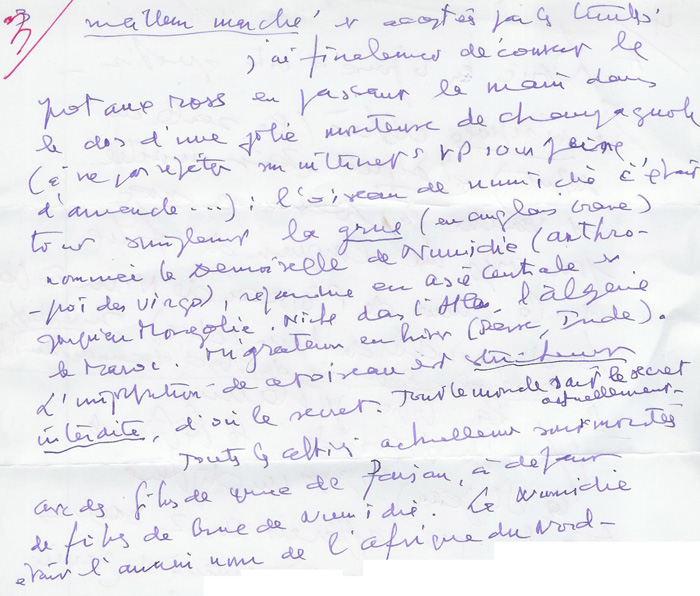 3/
meilleur marché et acceptés par les truites
j'ai finalement découvert le
pot aux roses en passant la main dans
le dos d'une jolie monteuse de champagnole
(à ne pas répéter sur internet SVP sous peine
d'amende...) : l'oiseau de numidie c'était
tout simplement la grue (en anglais crane)
nommée la Demoiselle de Numidie (anthro-
-poïdes virgo) répandue en asie centrale et
jusqu'en Mongolie. Niche dans l'Atlas, l'algérie
le Maroc. Migrateur en hiver (Perse, Inde).
L'importation de cet oiseau est
interdite, d'où le secret. Tout le monde sait le secret
actuellement
Toutes les actuellement sont montés
avec des fibres de queue de Faisan, à défaut
de fibres de Grue de Numidie. La Numidie
était l'ancien nom de l'afrique du Nord-